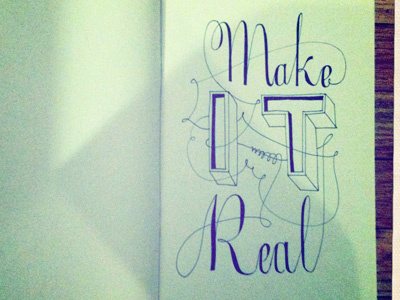 Make
IT
Real